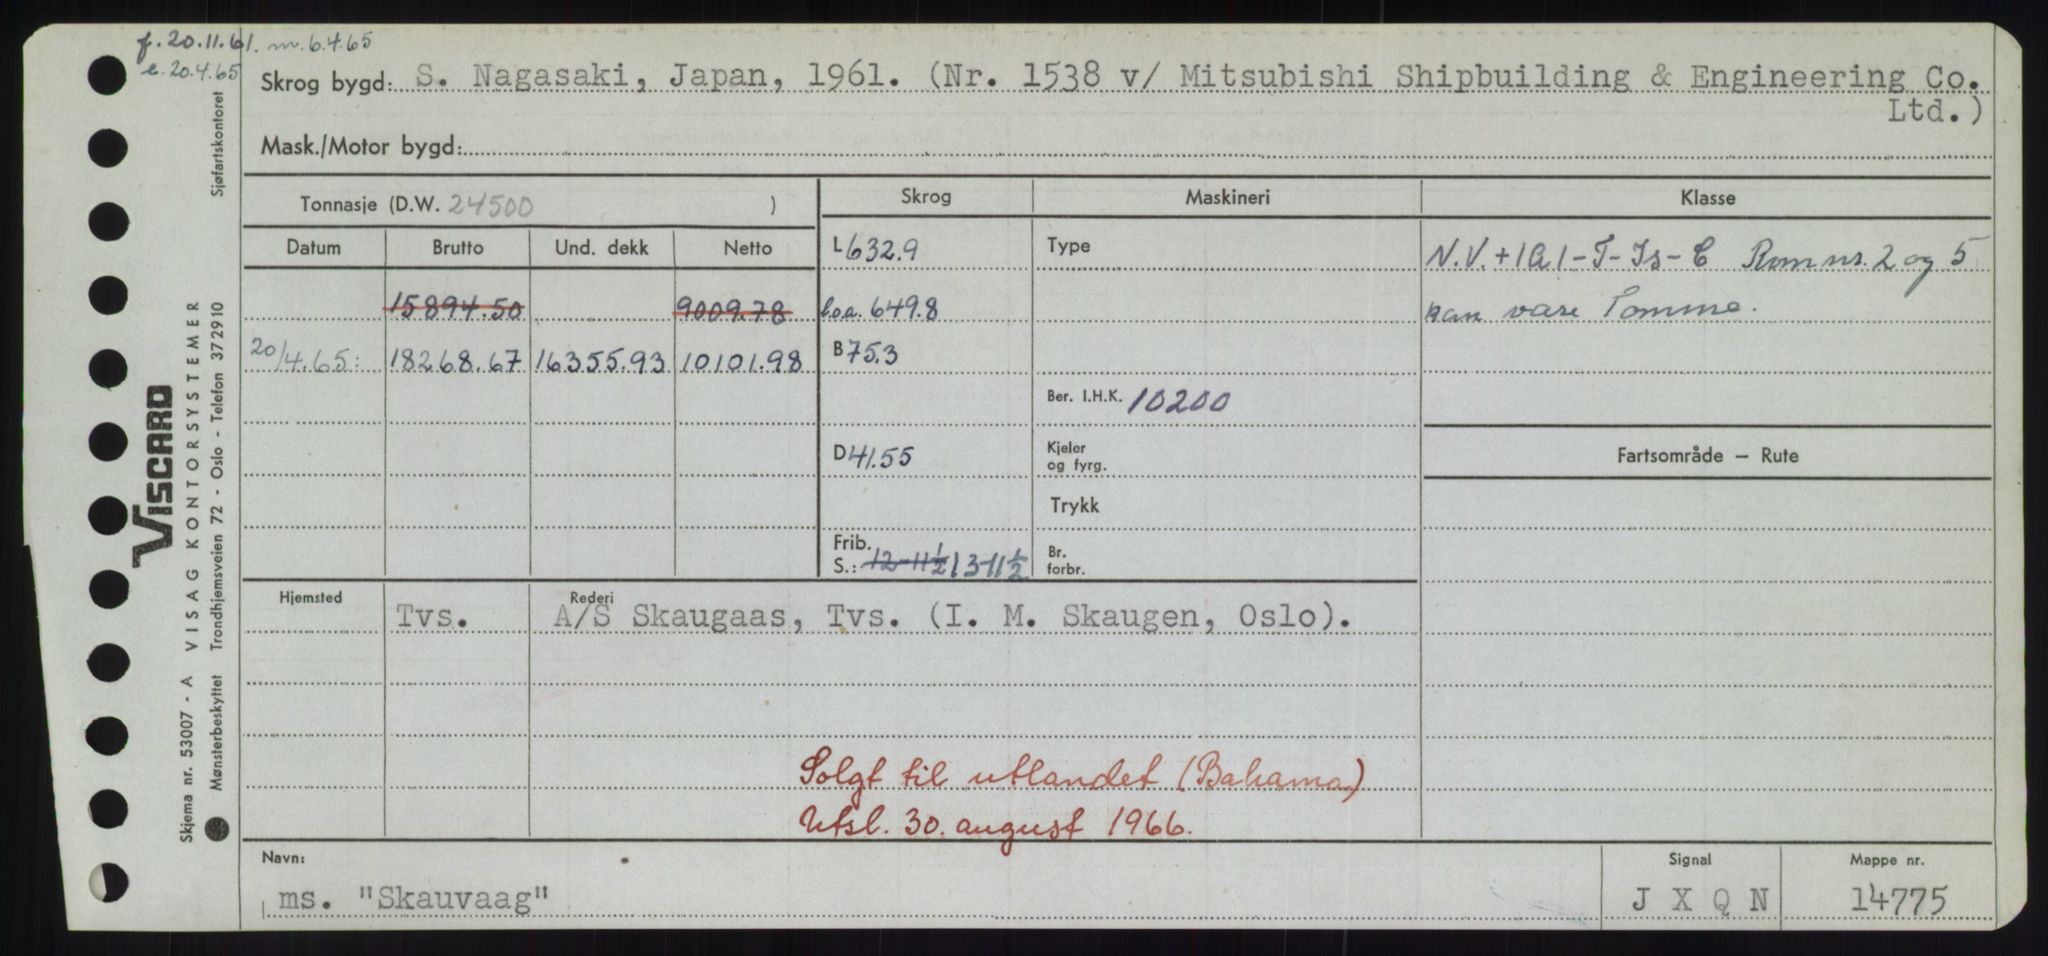 f. 20.11.61. m. 6.4.65
e. 20.4.65
Skrog bygd: S. Nagasaki, Japan, 1961. (Nr. 1538 v/ Mitsubishi Shipbuilding & Engineering Co.
Ltd.)
Mask./Motor bygd:
Tonnasje (D.W. 24500 )
Skrog Maskineri Klasse
Datum Brutto Und. dekk Netto
L 632.9 Type N.V. + 1A1-T-Is-C Rom nr. 2 og 5
15894.50 9009.78 l.o.a. 649.8 kan være Tomme.
20/4.65: 18268.67 16355.93 10101.98 B 75.3
Ber. I.H.K. 10200
D 41.55 Kjeler
og fyrg.
Fartsområde – Rute
Trykk
Frib.
S.: 12-11½ 13-11½ Br.
forbr.
Hjemsted Rederi
Tvs. A/S Skaugaas, Tvs. (I. M. Skaugen, Oslo).
Solgt til utlandet (Bahama)
Utsl. 30. august 1966.
Navn: Signal Mappe nr.
ms. "Skauvaag" J X Q N 14775
VISCARD
Skjema nr. 53007 - A VISAG KONTORSYSTEMER
Mønsterbeskyttet Trondhjemsveien 72 - Oslo - Telefon 372910 Sjøfartskontoret